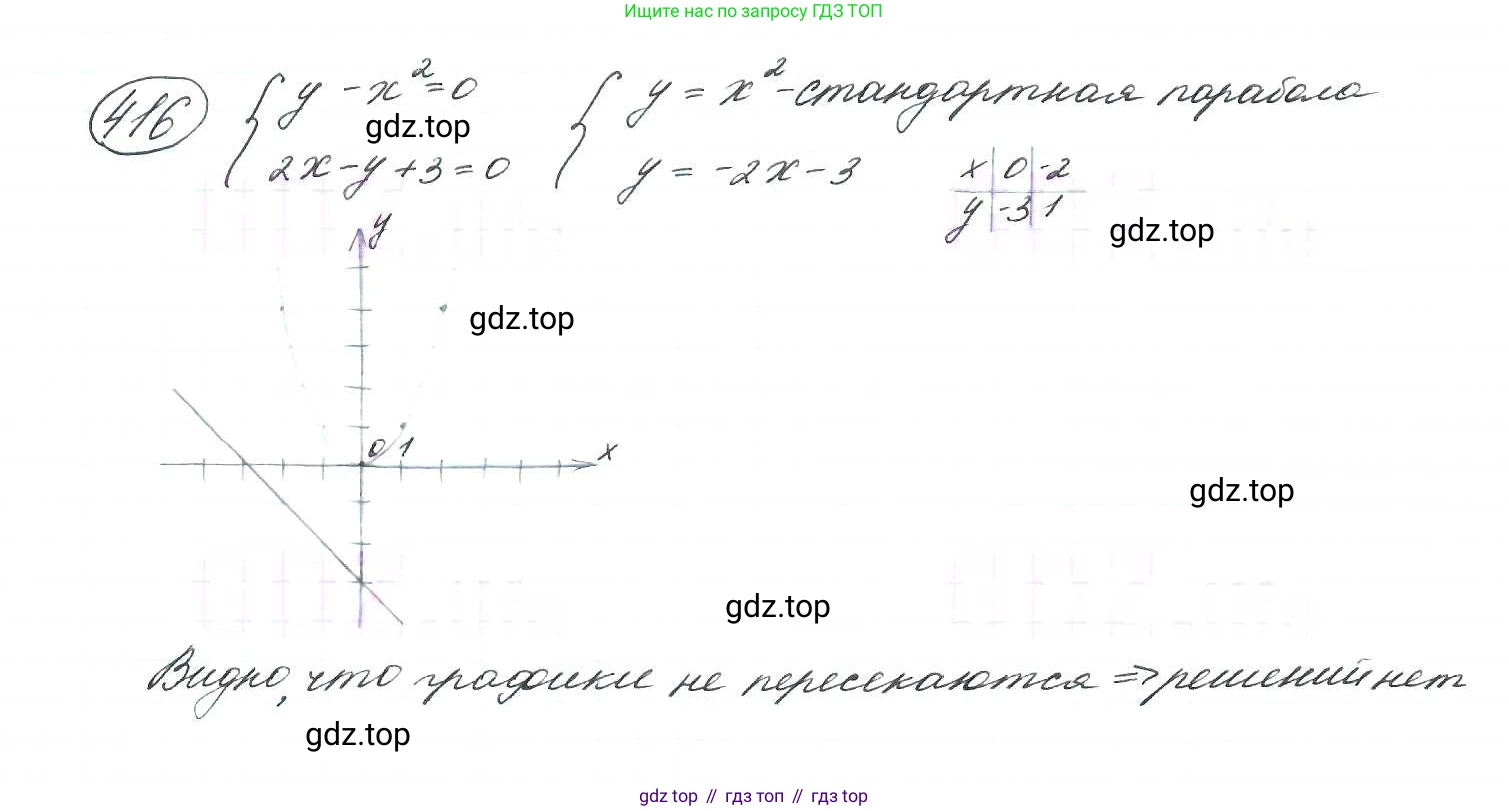 Ищите нас по запросу ГДЗ ТОП
416 { y - x² = 0 { y = x² - стандартная парабола
gdz.top
2x - y + 3 = 0 y = -2x - 3 x | 0 | -2
y | -3 | 1
gdz.top
y
gdz.top
0 1 x
gdz.top
gdz.top
Видно, что графики не пересекаются => решений нет
gdz.top
gdz top // гдз топ // гдз top